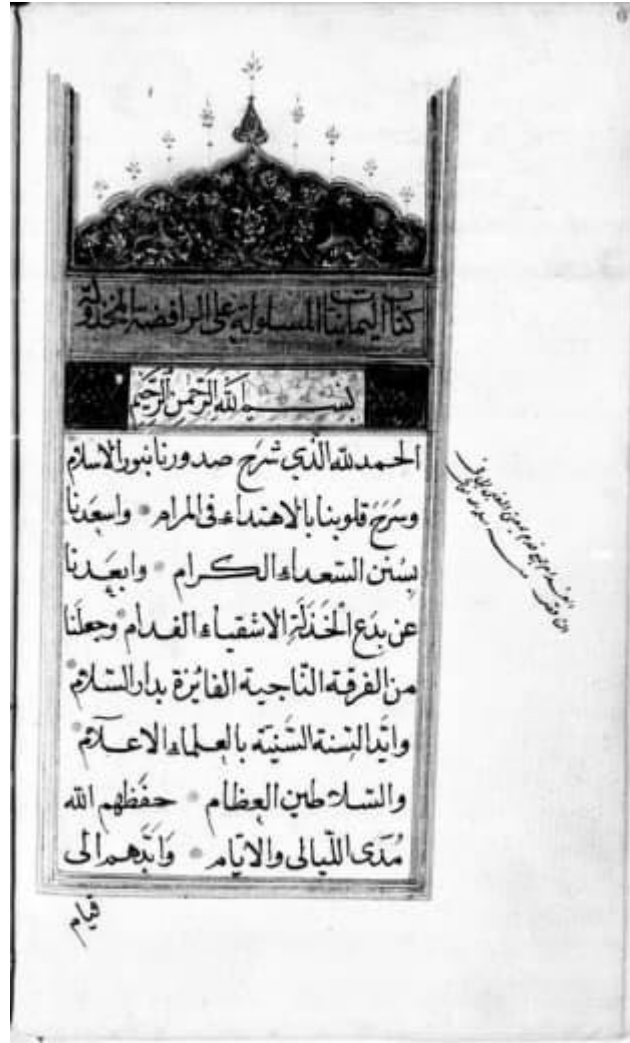 كتاب اليمانيات المسلولة على الرافضة المخذولة
بسم الله الرحمن الرحيم
الحمد لله الذي شرح صدورنا بنور الاسلام
وسرح قلوبنا بالاهتداء فى المرام واسعدنا
بسنن السعداء الكرام وابعدنا
عن بدع الخذلة الاشقياء الفدام وجعلنا
من الفرقة الناجية الفائزة بدار السلام
وايد السنة السنية بالعلماء الاعلام
والسلاطين العظام حفظهم الله
مدى الليالى والايام وابدهم الى
قيام